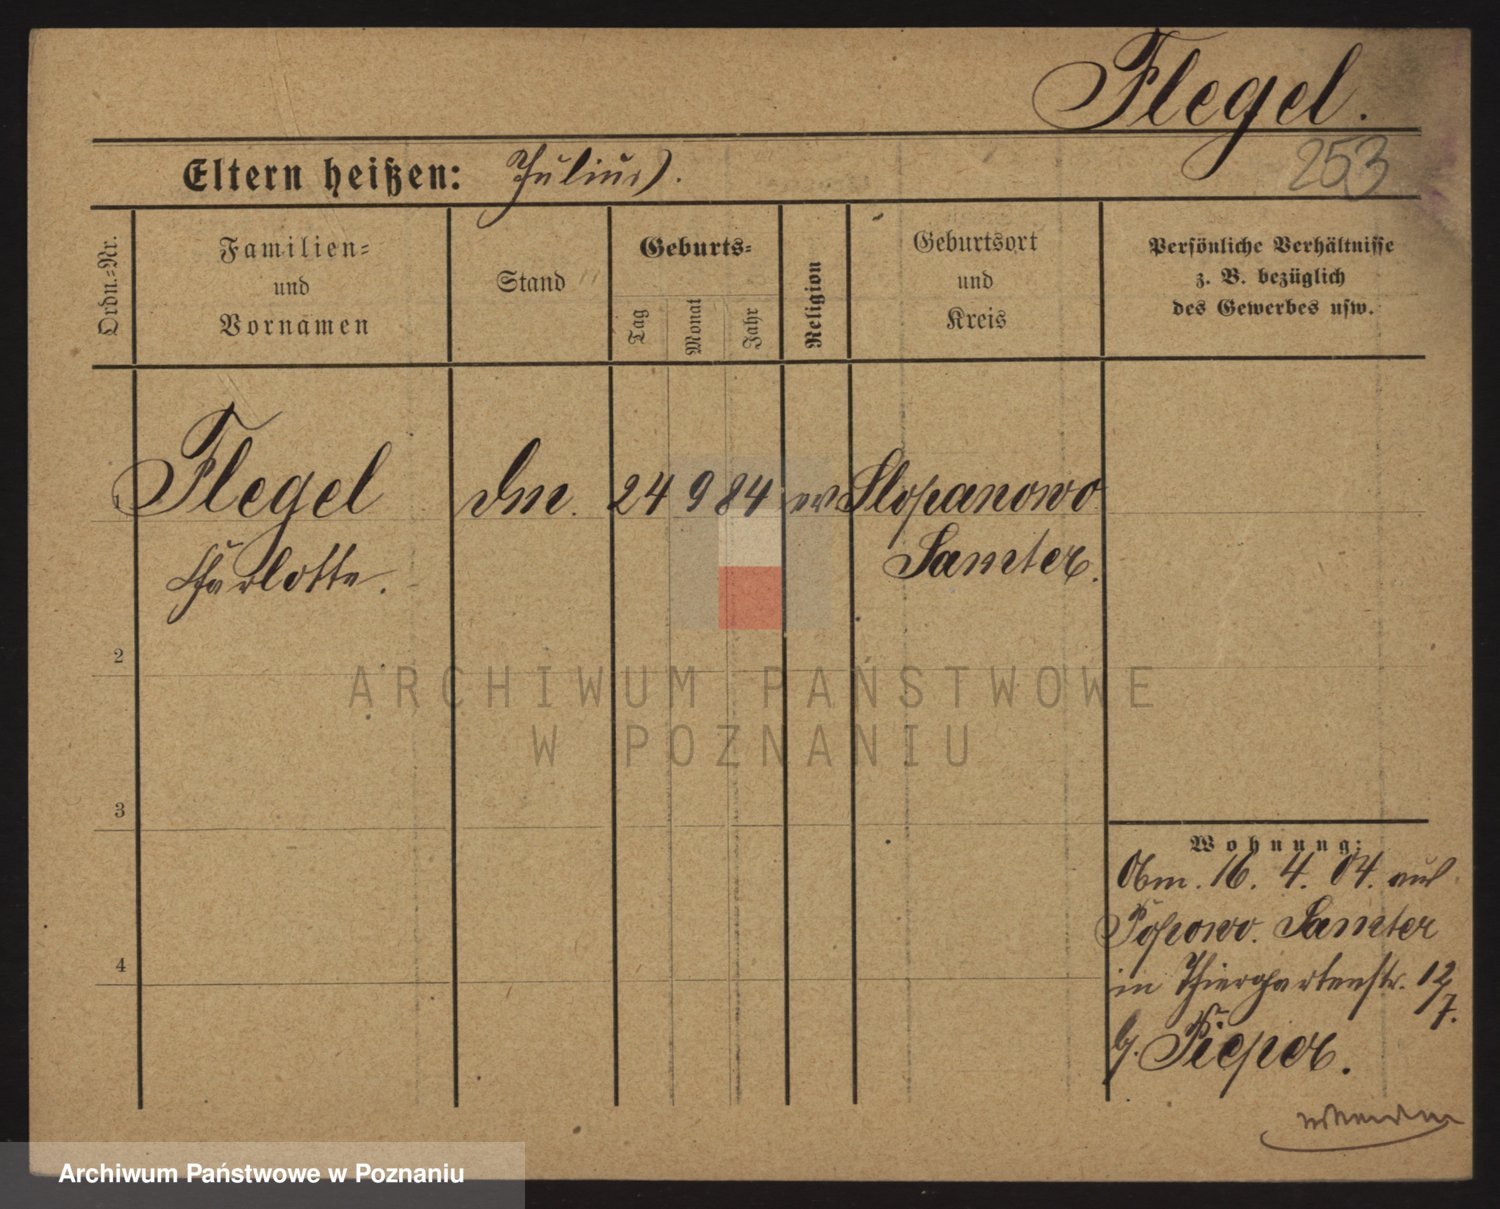 Flegel.
253
Eltern heißen: Julius.
Ordn.-Nr.
Familien-
und
Vornamen
Stand
Geburts-
Tag
Monat
Jahr
Religion
Geburtsort
und
Kreis
Persönliche Verhältnisse
z. B. bezüglich
des Gewerbes usw.
Flegel 24 9 84 ev Slopanowo
Charlotte. Samter.
2
3
4
Wohnung:
16. 4. 04. aus
Popowo. Samter
in Thiergartenstr. 12/7.
b. Pieper.
ARCHIWUM PAŃSTWOWE
W POZNANIU
Archiwum Państwowe w Poznaniu